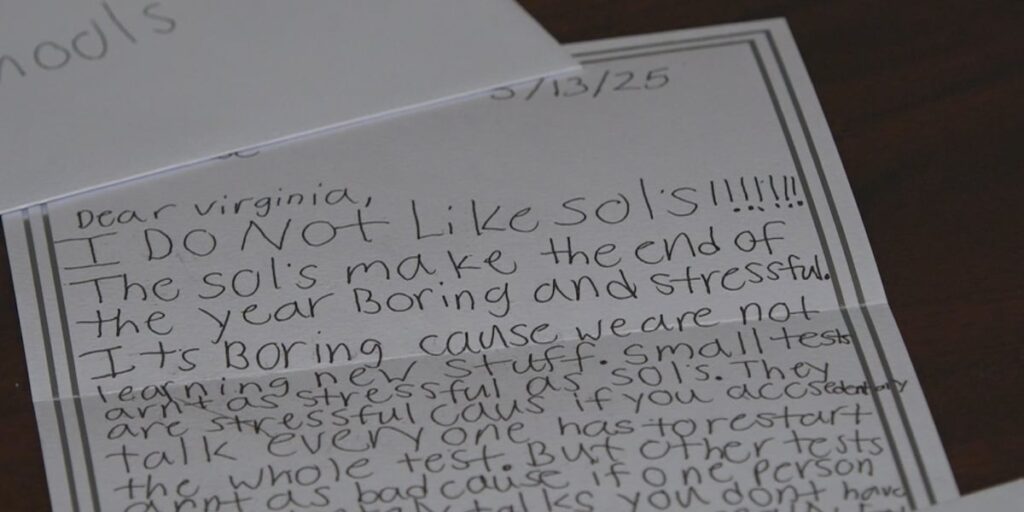 5/13/25
Dear virginia,
I DO NOt Like Sol's!!!!!!!
The Sol's make the end of
the year Boring and stressful.
Its Boring cause we are not
learning new stuff. small tests
arnt as stressful as sol's. They
are stressful caus if you accsedentally
talk everyone has to restart
the whole test. But other tests
arnt as bad cause if one person
talks you dont have